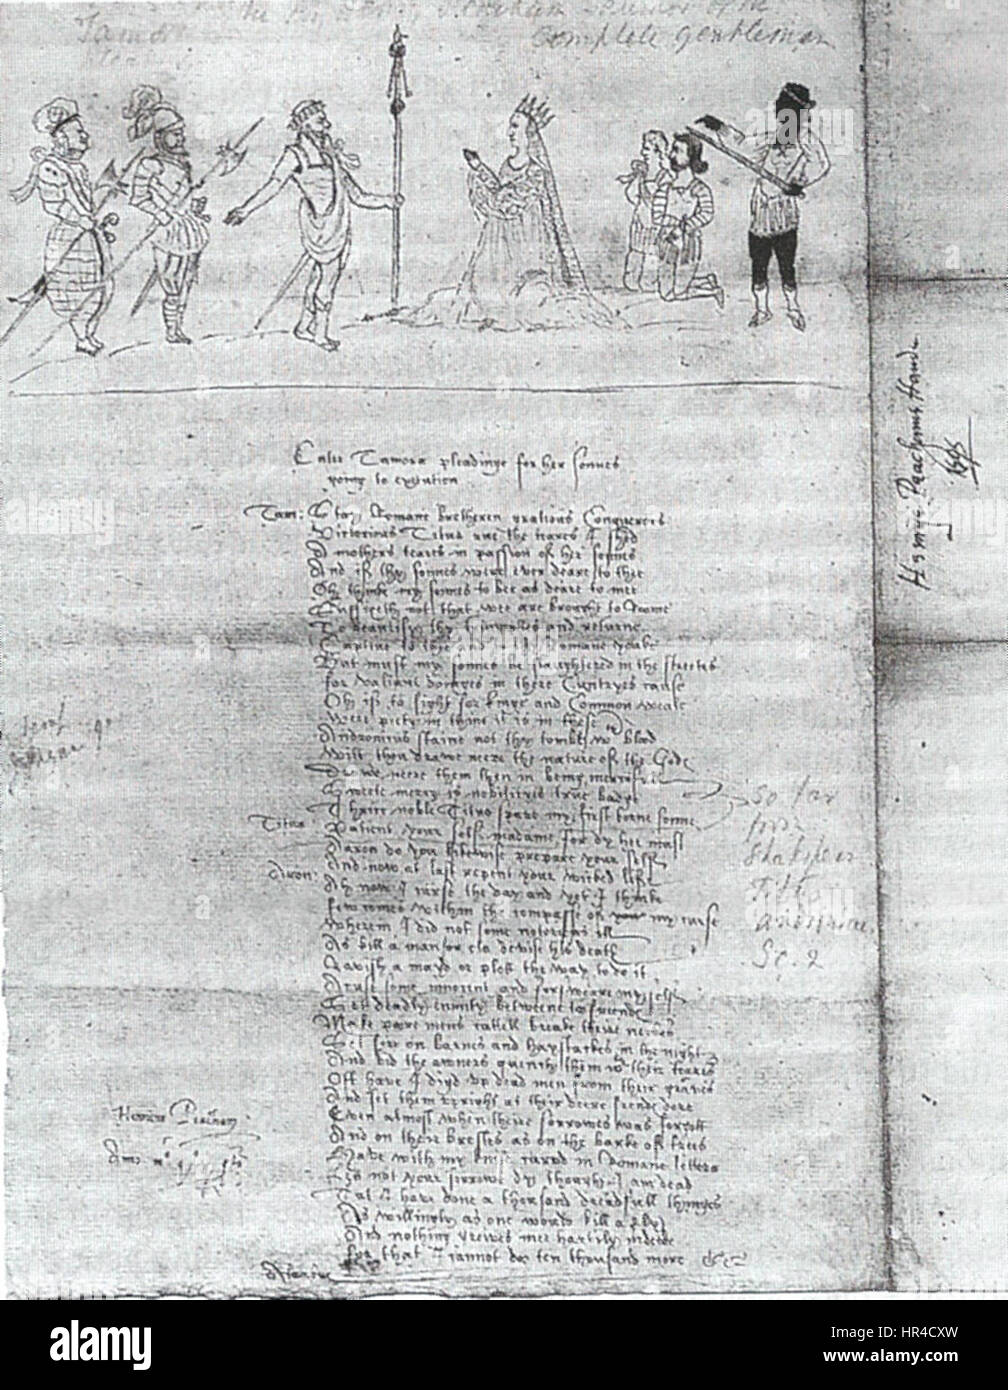 complete gentleman
Enter Tamora pleadinge for her sonnes
going to execution
Tam: Stay Romane bretheren gratious Conquerors
Victorious Titus rue the teares I shed
A mothers teares in passion of her sonnes
And if thy sonnes were ever deare to thee
Oh thinke my sonnes to bee as deare to mee
Sufficeth not that wee are brought to Roome
To beautify thy triumphes and returne
Captive to thee and Romane yoake
But must my sonnes be slaughtered in the streetes
for valiant doinges in there Cuntryes cause
Oh if to fight for kinge and Common weale
Were piety in thine it is in these
Andronicus staine not thy tombe wth blood
Wilt thou drawe neere the nature of the Gods
Drawe neere them then in being mercifull
Sweete mercy is nobilityes true badge
Thrice noble Titus spare my first borne sonne
Titus Patient your self madame for dy hee must
Aaron do you likewise prepare your self
And now at last repent your wicked life
Aron: Ah now I curse the day and yet I thinke
few comes within the compasse of my curse
Wherein I did not some notorious ill
As kill a man or els devise his death
Ravish a mayd or plott the way to do it
Acuse some innocent and forsweare my self
Set deadly enmity betweene to freendes
Make poore mens cattell breake theire neckes
Set fire on barnes and haystackes in the night
And bid the owners quench them wth their teares
Oft have I digd up dead men from their graves
And set them upright at their deere frendes dore
Even almost when theire sorrowes was forgott
And on their brestes as on the barke of trees
Have with my knife carvd in Romane letters
Lett not your sorrowe dy though I am dead
Tut I have done a thousand dreadfull thinges
As willingly as one would kill a fly
And nothing greives mee hartily indeede
for that I cannot doo ten thousand more &c
Alarbus
So far
from
Shakspear
Titus
Andronicus
Sc. 2
Henricus Peacham
Henrye Peachams Hande
1595
alamy
a
alamy
Image ID: HR4CXW
www.alamy.com